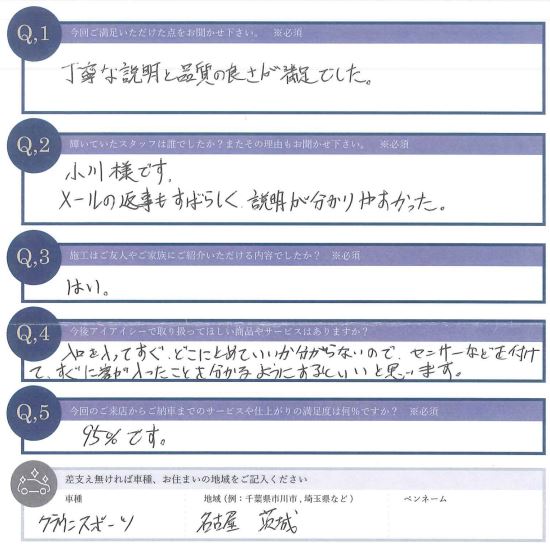 Q,1 今回ご満足いただけた点をお聞かせ下さい。 ※必須
丁寧な説明と品質の良さが満足でした。
Q,2 輝いていたスタッフは誰でしたか?またその理由もお聞かせ下さい。 ※必須
小川様です。
メールの返事もすばらしく、説明が分かりやすかった。
Q,3 施工はご友人やご家族にご紹介いただける内容でしたか? ※必須
はい。
Q,4 今後アイアイシーで取り扱ってほしい商品やサービスはありますか?
入口を入ってすぐ、どこにとめていいか分からないので、センサーなどを付け
て、すぐに客が入ったことを分かるようにするといいと思います。
Q,5 今回のご来店からご納車までのサービスや仕上がりの満足度は何%ですか? ※必須
95%です。
差支え無ければ車種、お住まいの地域をご記入ください
車種 地域(例:千葉県市川市,埼玉県など) ペンネーム
クラウンスポーツ 名古屋 茨城